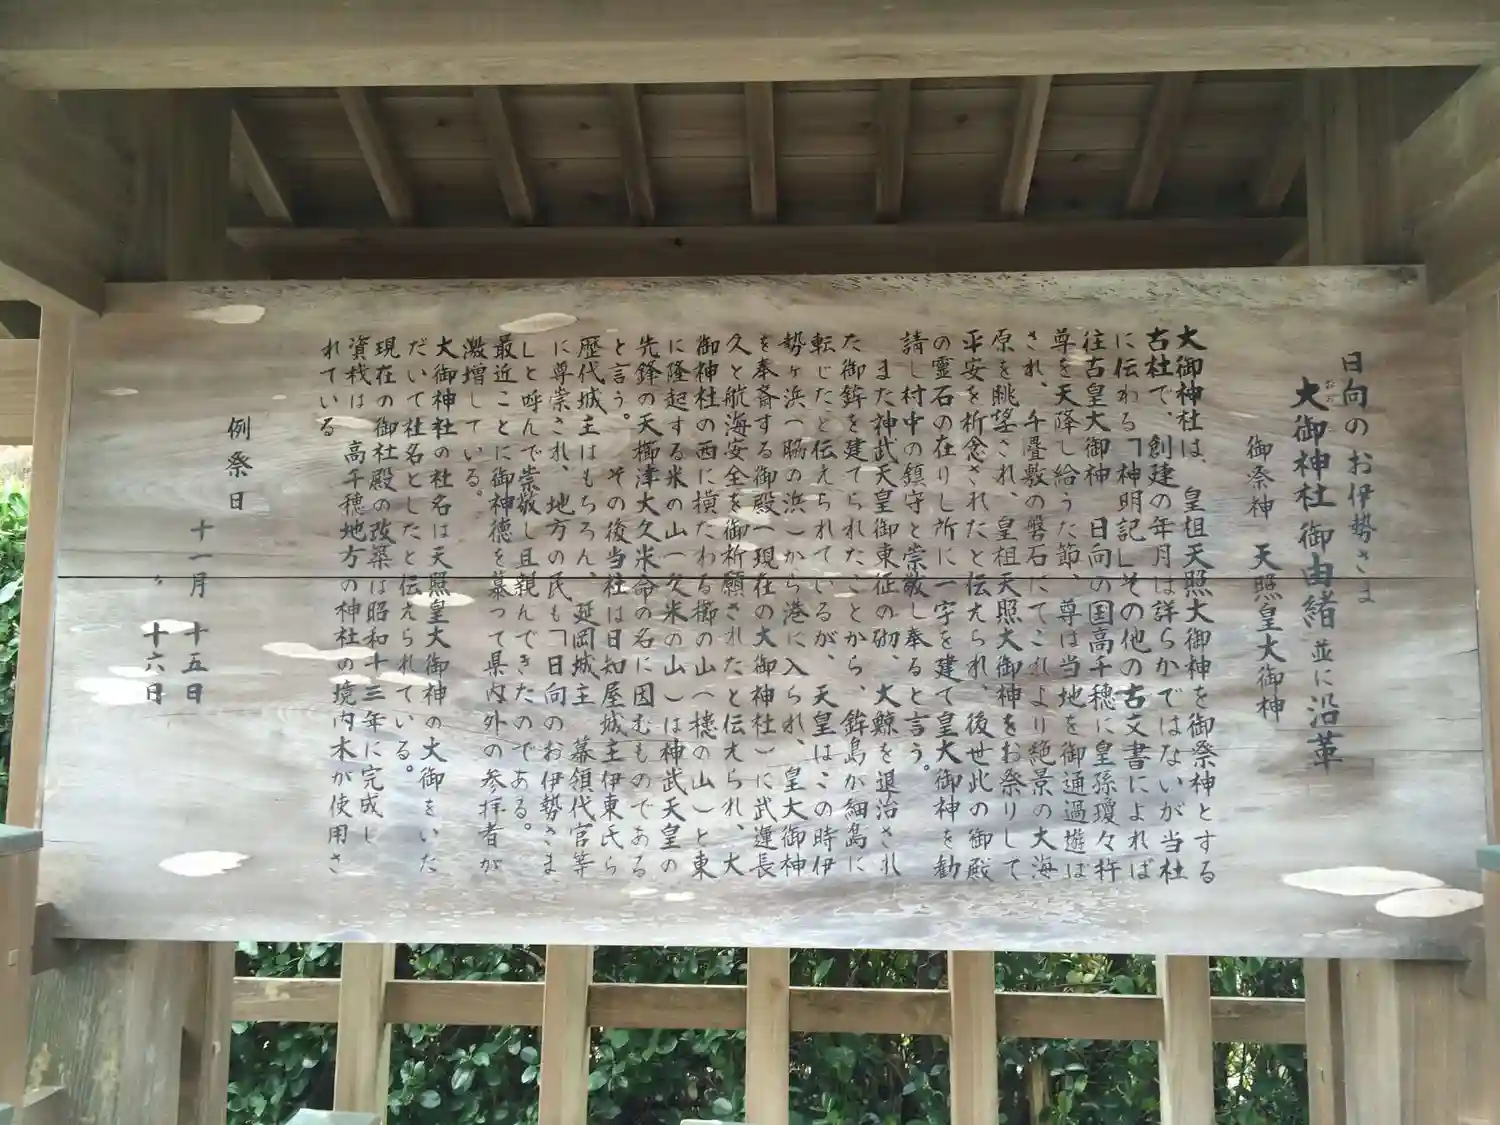 日向のお伊勢さま
大御神社御由緒並に沿革
おお
御祭神 天照皇大御神
大御神社は、皇祖天照大御神を御祭神とする
古社で、創建の年月は詳らかではないが当社
に伝わる「神明記」その他の古文書によれば
往古皇大御神 日向の国高千穂に皇孫瓊々杵
尊を天降し給うた節、尊は当地を御通過遊ば
され、千畳敷の磐石にてこれより絶景の大海
原を眺望され、皇祖天照大御神をお祭りして
平安を祈念されたと伝えられ、後世此の御殿
の霊石の在りし所に一宇を建て皇大御神を勧
請し村中の鎮守と崇敬し奉ると言う。
また神武天皇御東征の砌、大鯨を退治され
た御鉾を建てられたことから、鉾島が細島に
転じたと伝えられているが、天皇はこの時伊
勢ヶ浜(脇の浜)から港に入られ、皇大御神
を奉斎する御殿(現在の大御神社)に武運長
久と航海安全を御祈願されたと伝えられ、大
御神社の西に横たわる櫛の山(樋の山)と東
に隆起する米の山(久米の山)は神武天皇の
先鋒の天櫛津大久米命の名に因むものである
と言う。その後当社は日知屋城主伊東氏ら
歴代城主はもちろん、延岡城主 幕領代官等
に尊崇され、地方の民も「日向のお伊勢さま
」と呼んで崇敬し且親んできたのである。
最近ことに御神徳を慕って県内外の参拝者が
激増している。
大御神社の社名は天照皇大御神の大御をいた
だいて社名としたと伝えられている。
現在の御社殿の改築は昭和十三年に完成し
資材は、高千穂地方の神社の境内木が使用さ
れている
例祭日
十一月 十五日
〃 十六日